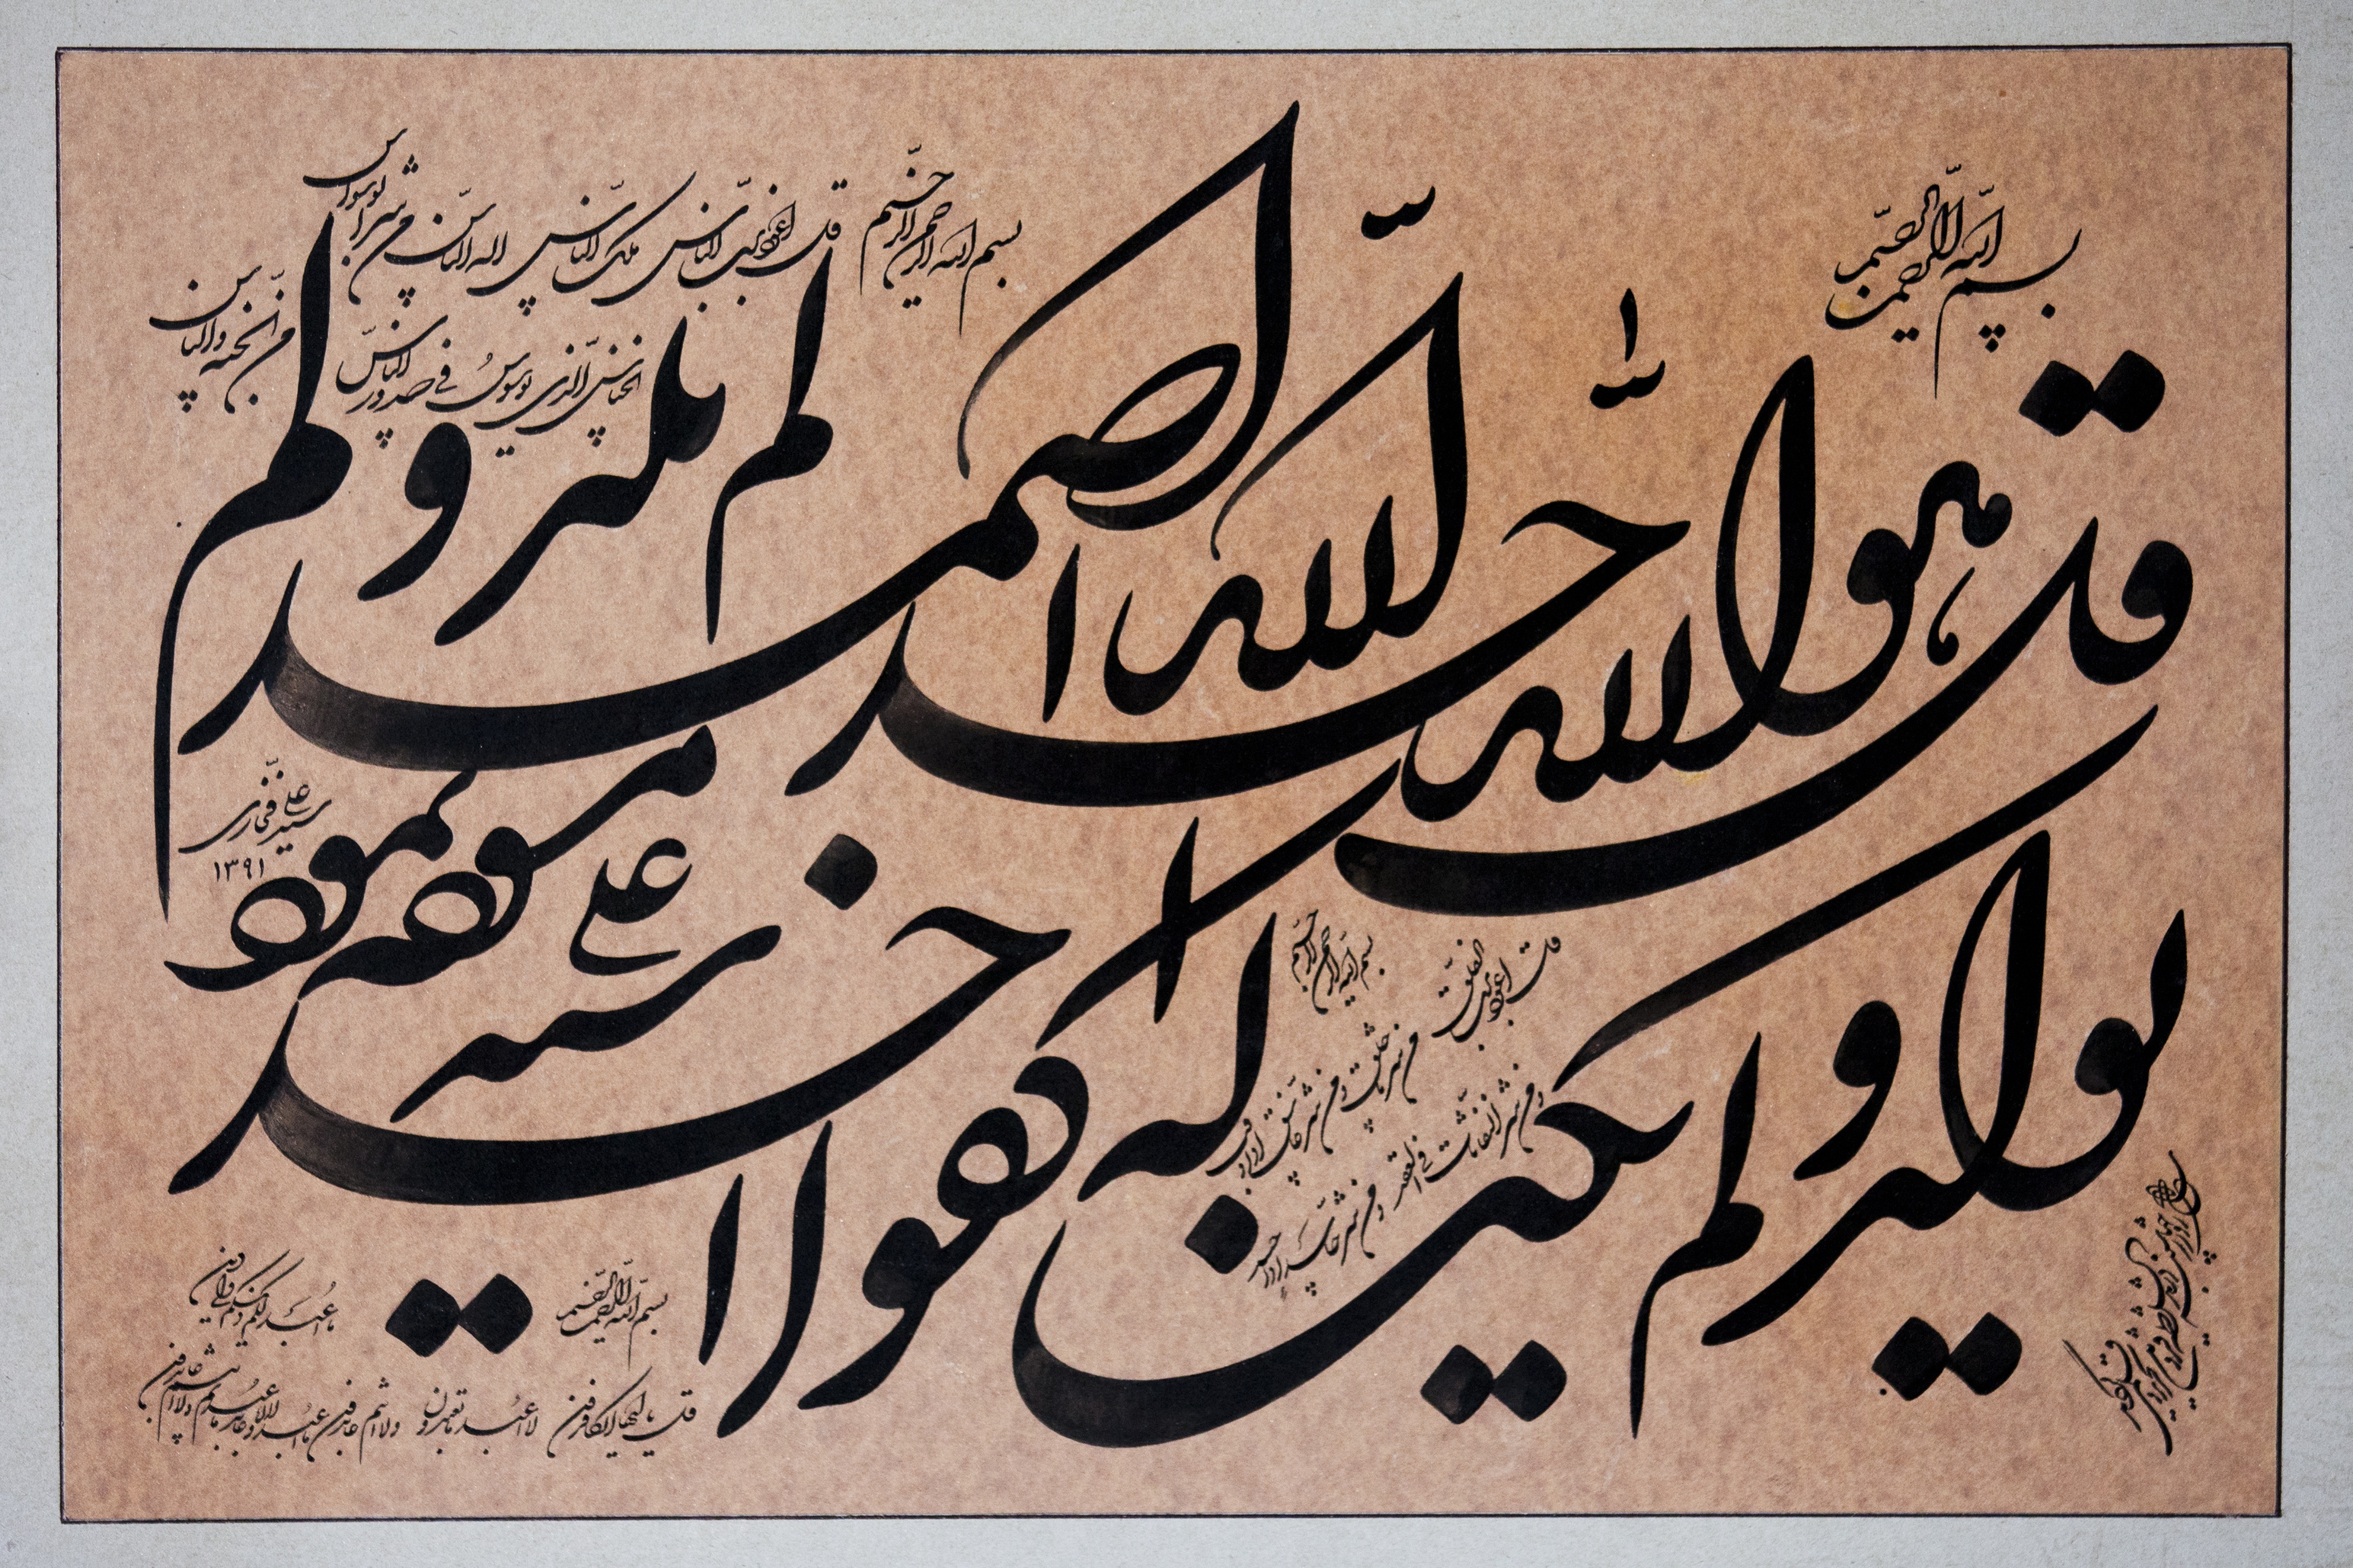 بسم الله الرحمن الرحیم
قل هو الله احد الله الصمد لم یلد و لم
یولد و لم یکن له کفوا احد
بسم الله الرحمن الرحیم قل اعوذ برب الناس ملک الناس اله الناس من شر الوسواس
الخناس الذی یوسوس فی صدور الناس من الجنه و الناس
بسم الله الرحمن الرحیم
قل اعوذ برب الفلق
من شر ما خلق و من شر غاسق اذا وقب
و من شر النفاثات فی العقد و من شر حاسد اذا حسد
بسم الله الرحمن الرحیم
قل یا ایها الکافرون لا اعبد ما تعبدون و لا انتم عابدون ما اعبد و لا انا عابد ما عبدتم و لا انتم عابدون
ما اعبد لکم دینکم ولی دین
سید علی فخاری
۱۳۹۱